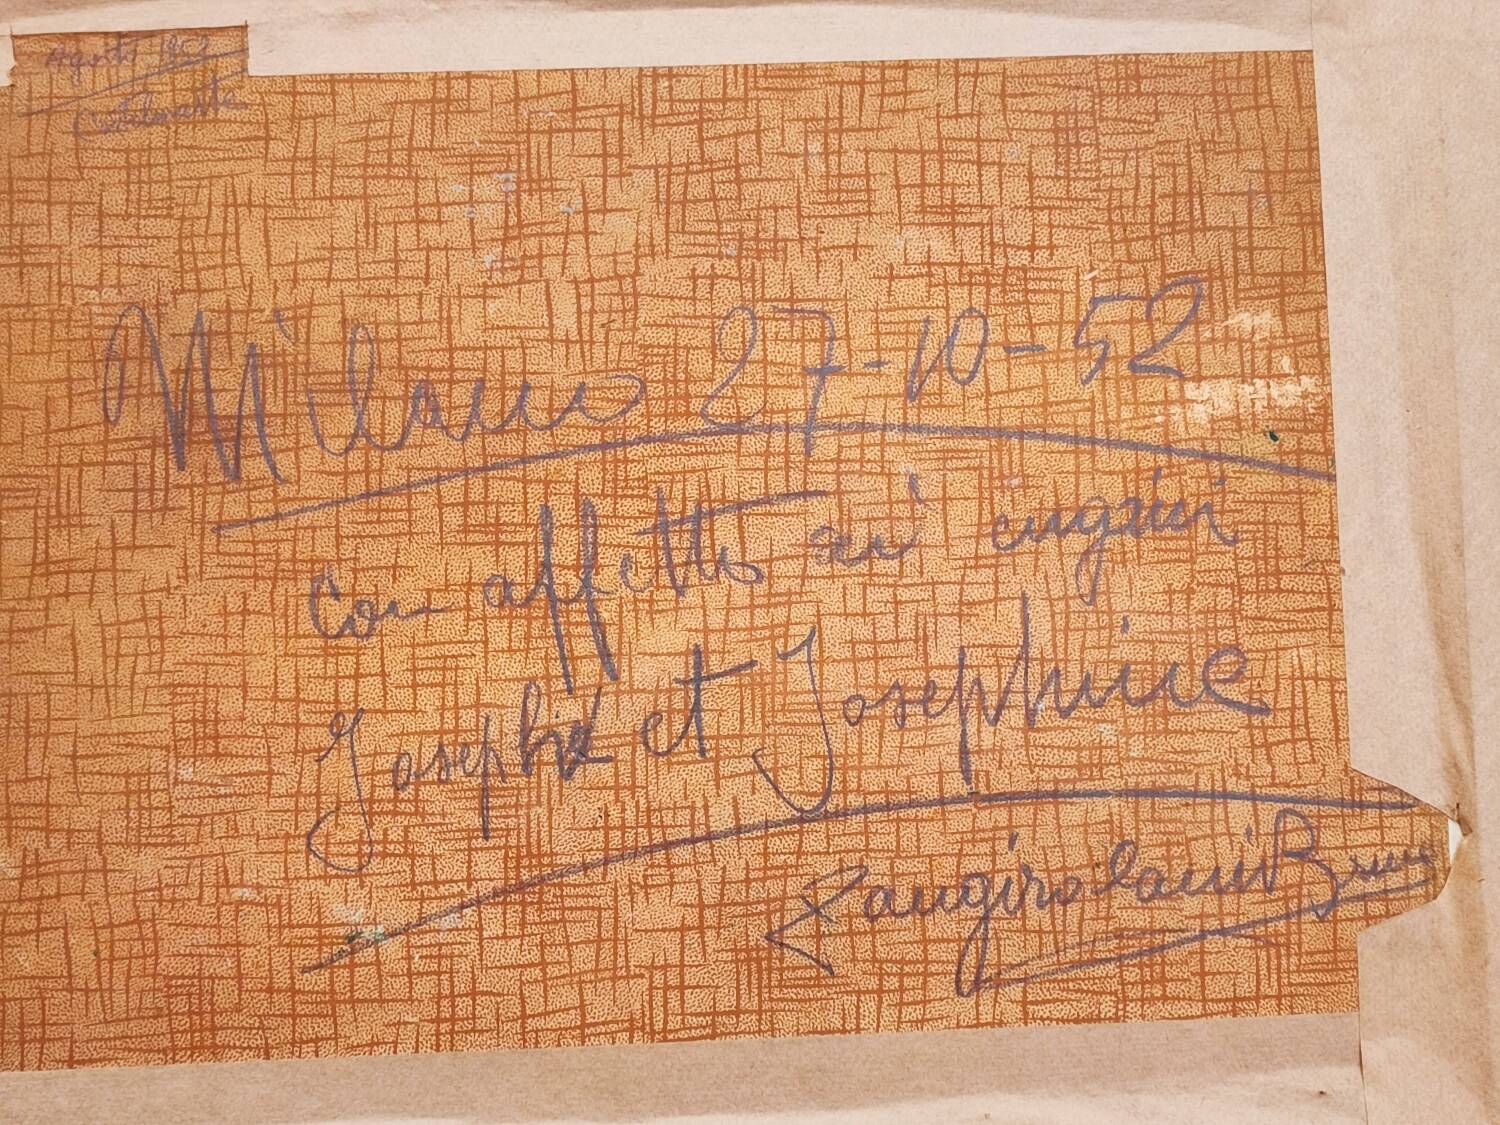 Agosto 1952
Milano 27-10-52
Con affetto ai cugini
Joseph et Josephine
Zangirolami Bruno